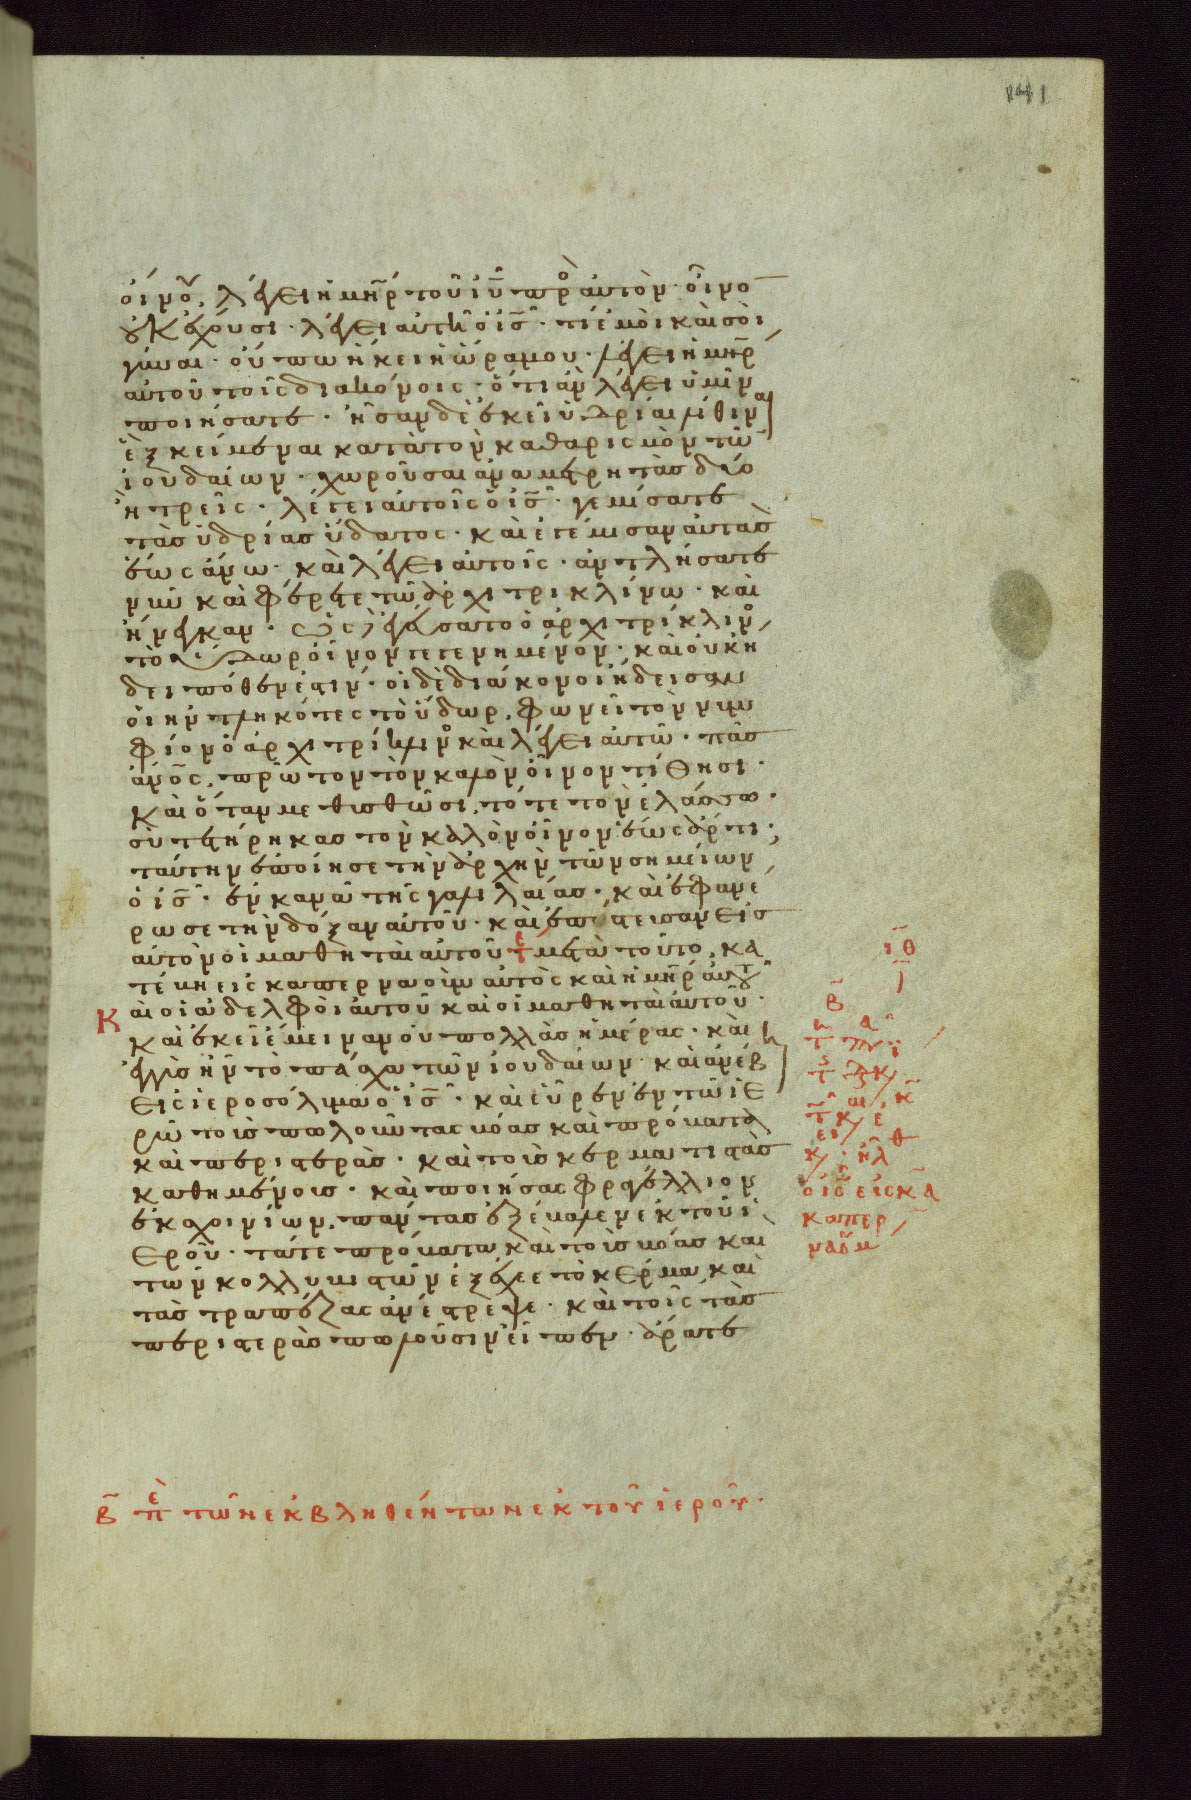 141
οίνου, λέγει η μηρ του ιυ προς αυτον· οινο
ουκ έχουσι· λέγει αυτη ο ις· τί εμοι και σοι
γύναι· ούπω ήκει η ώρα μου· λέγει η μηρ
αυτου τοις διακόνοις· ότι αν λέγει υμιν
ποιήσατε· ησαν δε εκει υδρίαι λίθιναι
εξ κείμεναι κατα τον καθαρισμον των
ιουδαίων· χωρουσαι ανα μετρητας δύο
η τρεις· λέγει αυτοις ο ις· γεμίσατε
τας υδρίας ύδατος· και εγέμισαν αυτας
έως άνω· και λέγει αυτοις· αντλήσατε
νυν και φέρετε τω αρχιτρικλίνω· και
ήνεγκαν· ως εγεύσατο ο αρχιτρίκλινος
το ύδωρ οίνον γεγενημένον· και ουκ ή
δει πόθεν εστίν· οι δε διάκονοι ήδεισαν
οι ηντληκότες το ύδωρ. φωνει τον νυμ
φίον ο αρχιτρίκλινος και λέγει αυτω· πας
ανος, πρωτον τον καλον οινον τίθησι·
και όταν μεθυσθωσι, τότε τον ελάσσω·
συ τετήρηκας τον καλον οινον έως άρτι·
ταύτην εποίησε την αρχην των σημείων
ο ις· εν κανα της γαλιλαίας· και εφανέ
ρωσε την δόξαν αυτου· και επίστευσαν εις
αυτον οι μαθηται αυτου τε μετα τουτο, κα
τέβη εις καπερναουμ αυτος και η μηρ αυτου
και οι αδελφοι αυτου και οι μαθηται αυτου·
και εκει έμειναν ου πολλας ημέρας· και
εγγυς ην το πάσχα των ιουδαίων· και ανέβη
εις ιεροσόλυμα ο ις· και ευρεν εν τω ιε
ρω τους πωλουντας βόας και πρόβατα
και περιστεράς· και τους κερματιστας
καθημένους· και ποιήσας φραγέλλιον
εκ σχοινίων, πάντας εξέβαλεν εκ του ι
ερου· τά τε πρόβατα και τους βόας και
των κολλυβιστων εξέχεε το κέρμα και
τας τραπέζας ανέστρεψε· και τοις τας
περιστερας πωλουσιν ειπεν· άρατε
ιθ
β
ηλθ
ο ις εις κα
περ
ναουμ
β πε των εκβληθέντων εκ του ιερου·